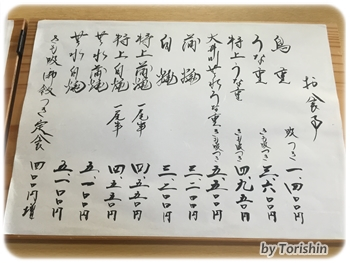 お食事
鳥重 吸つき 一、四〇〇円
うな重 きも吸つき 三、六〇〇円
特上うな重 きも吸つき 四、九五〇円
大井川共水うな重 きも吸つき 五、五〇〇円
蒲焼 三、二〇〇円
白焼 三、二〇〇円
特上蒲焼 一尾半 四、五五〇円
特上白焼 一尾半 四、五五〇円
共水蒲焼 五、一〇〇円
共水白焼 五、一〇〇円
きも吸御飯つき定食 四〇〇円増
by Torishin